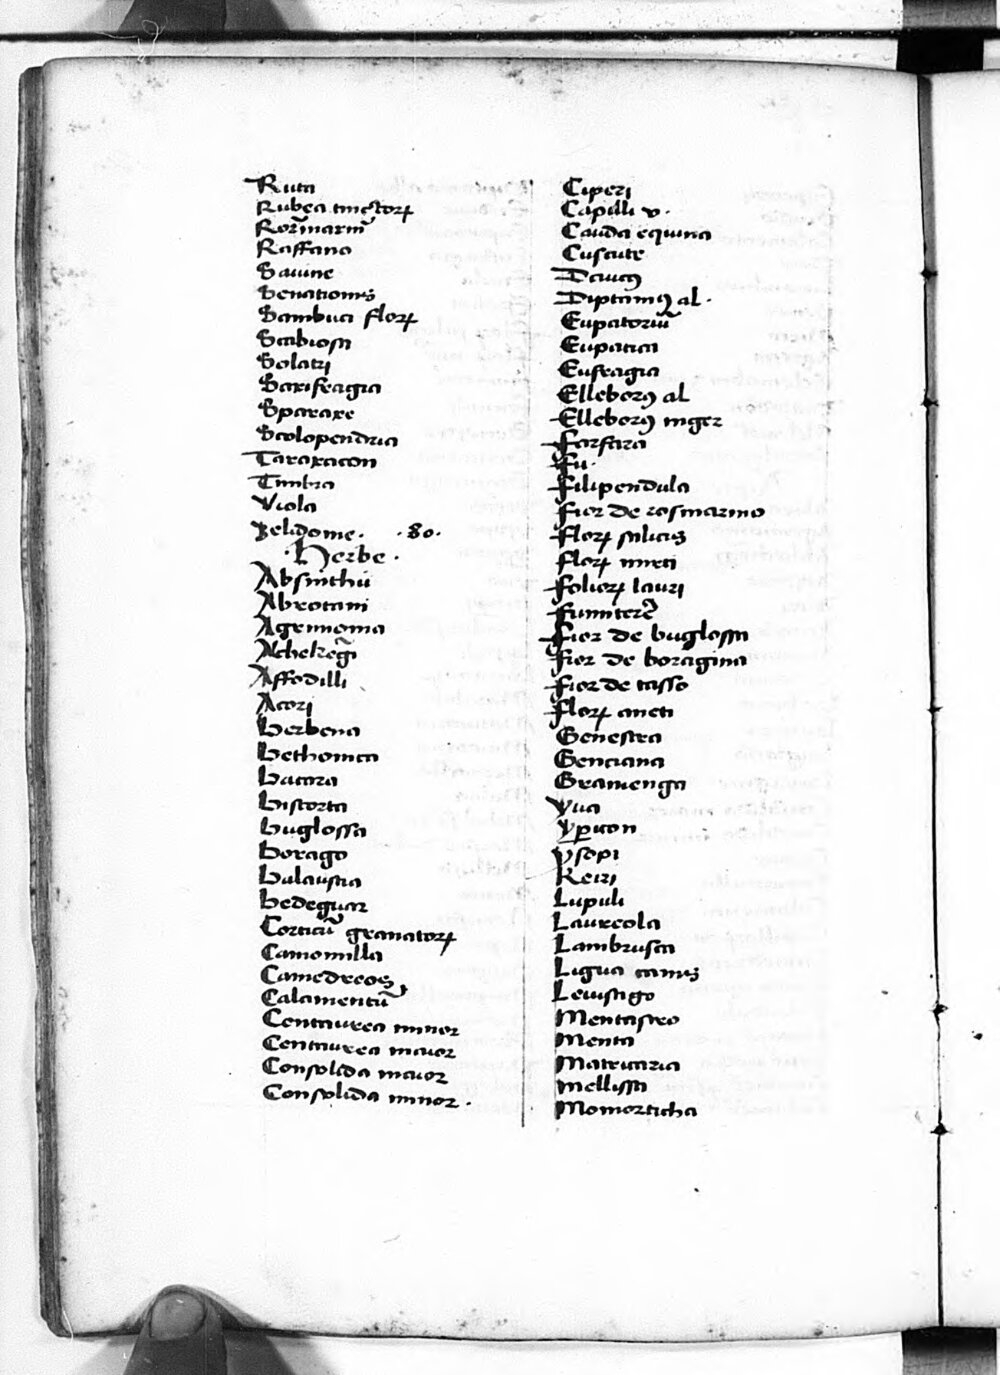 Ruta
Rubea tinctorꝝ
Rosmarinꝰ
Raffano
Savine
Senationis
Sambuci florꝝ
Scabiosa
Solatri
Saxifragia
Sparaxe
Scolopendria
Taraxacon
Timbra
Viola
Zelidome . .80.
.Herbe.
Absinthii
Abrotani
Agrimonia
Affodilli
Acori
Berbena
Bethonica
Bacara
Bistorta
Buglossa
Borago
Balaustia
Bedeguar
Corticū granatorꝝ
Camomilla
Camedreos
Calamentū
Centaurea minor
Centaurea maior
Consolida maior
Consolida minor.
Ciperi
Capilli v.
Cauda equina
Cuscute
Daucꝰ
Diptamꝰ al.
Eupatoriū
Eupatica
Eufragia
Elleborꝰ al
Elleborꝰ niger
Farfara
Fu.
Filipendula
Fior de rosmarino
Florꝝ salicis
Florꝝ mirti
Foliorꝝ lauri
Fumiterē
Fior de buglossa
Fior de boragina
Fior de tasso
Florꝝ aneti
Genestra
Genciana
Gramenga
Yua
Yꝑicon
Ysopi
Keiri
Lupuli
Laureola
Lambrusca
Ligua canis
Levistigo
Mentastro
Menta
Matricaria
Mellissa
Momorticha